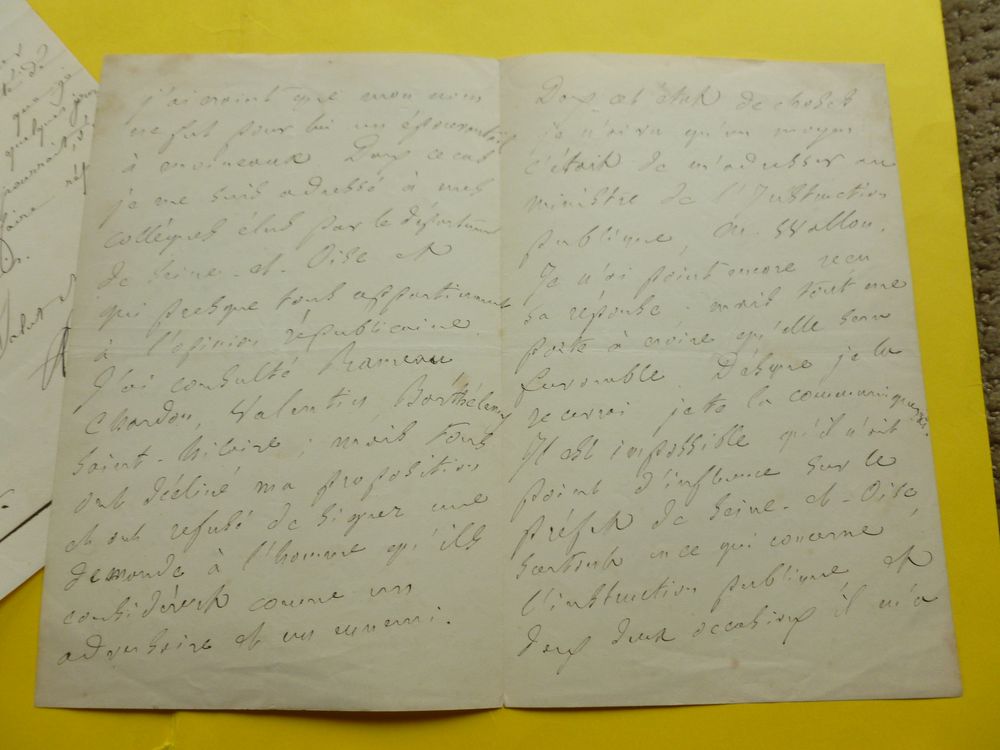 j'ai craint que mon nom
ne fut pour lui un épouvantail
à moineaux. Dans ce cas
je me suis adressé à mes
collègues élus par le département
de Seine-et-Oise et
qui presque tous appartiennent
à l'opinion républicaine.
J'ai consulté Rameau
Charton, Valentin, Barthélemy
Saint-hilaire ; mais tous
ont décliné ma proposition
et ont refusé de signer une
demande à l'homme qu'ils
considèrent comme un
adversaire et un ennemi.
Dans cet état de choses
je n'ai vu qu'un moyen
c'était de m'adresser au
ministre de l'Instruction
publique, M. Wallon.
Je n'ai point encore reçu
sa réponse. mais tout me
porte à croire qu'elle sera
favorable. Dès que je la
recevrai je te la communiquerai.
Il est impossible qu'il n'ait
point d'influence sur le
préfet de Seine-et-Oise,
surtout en ce qui concerne
l'instruction publique et
dans deux occasions il m'a
quelques
pourrait